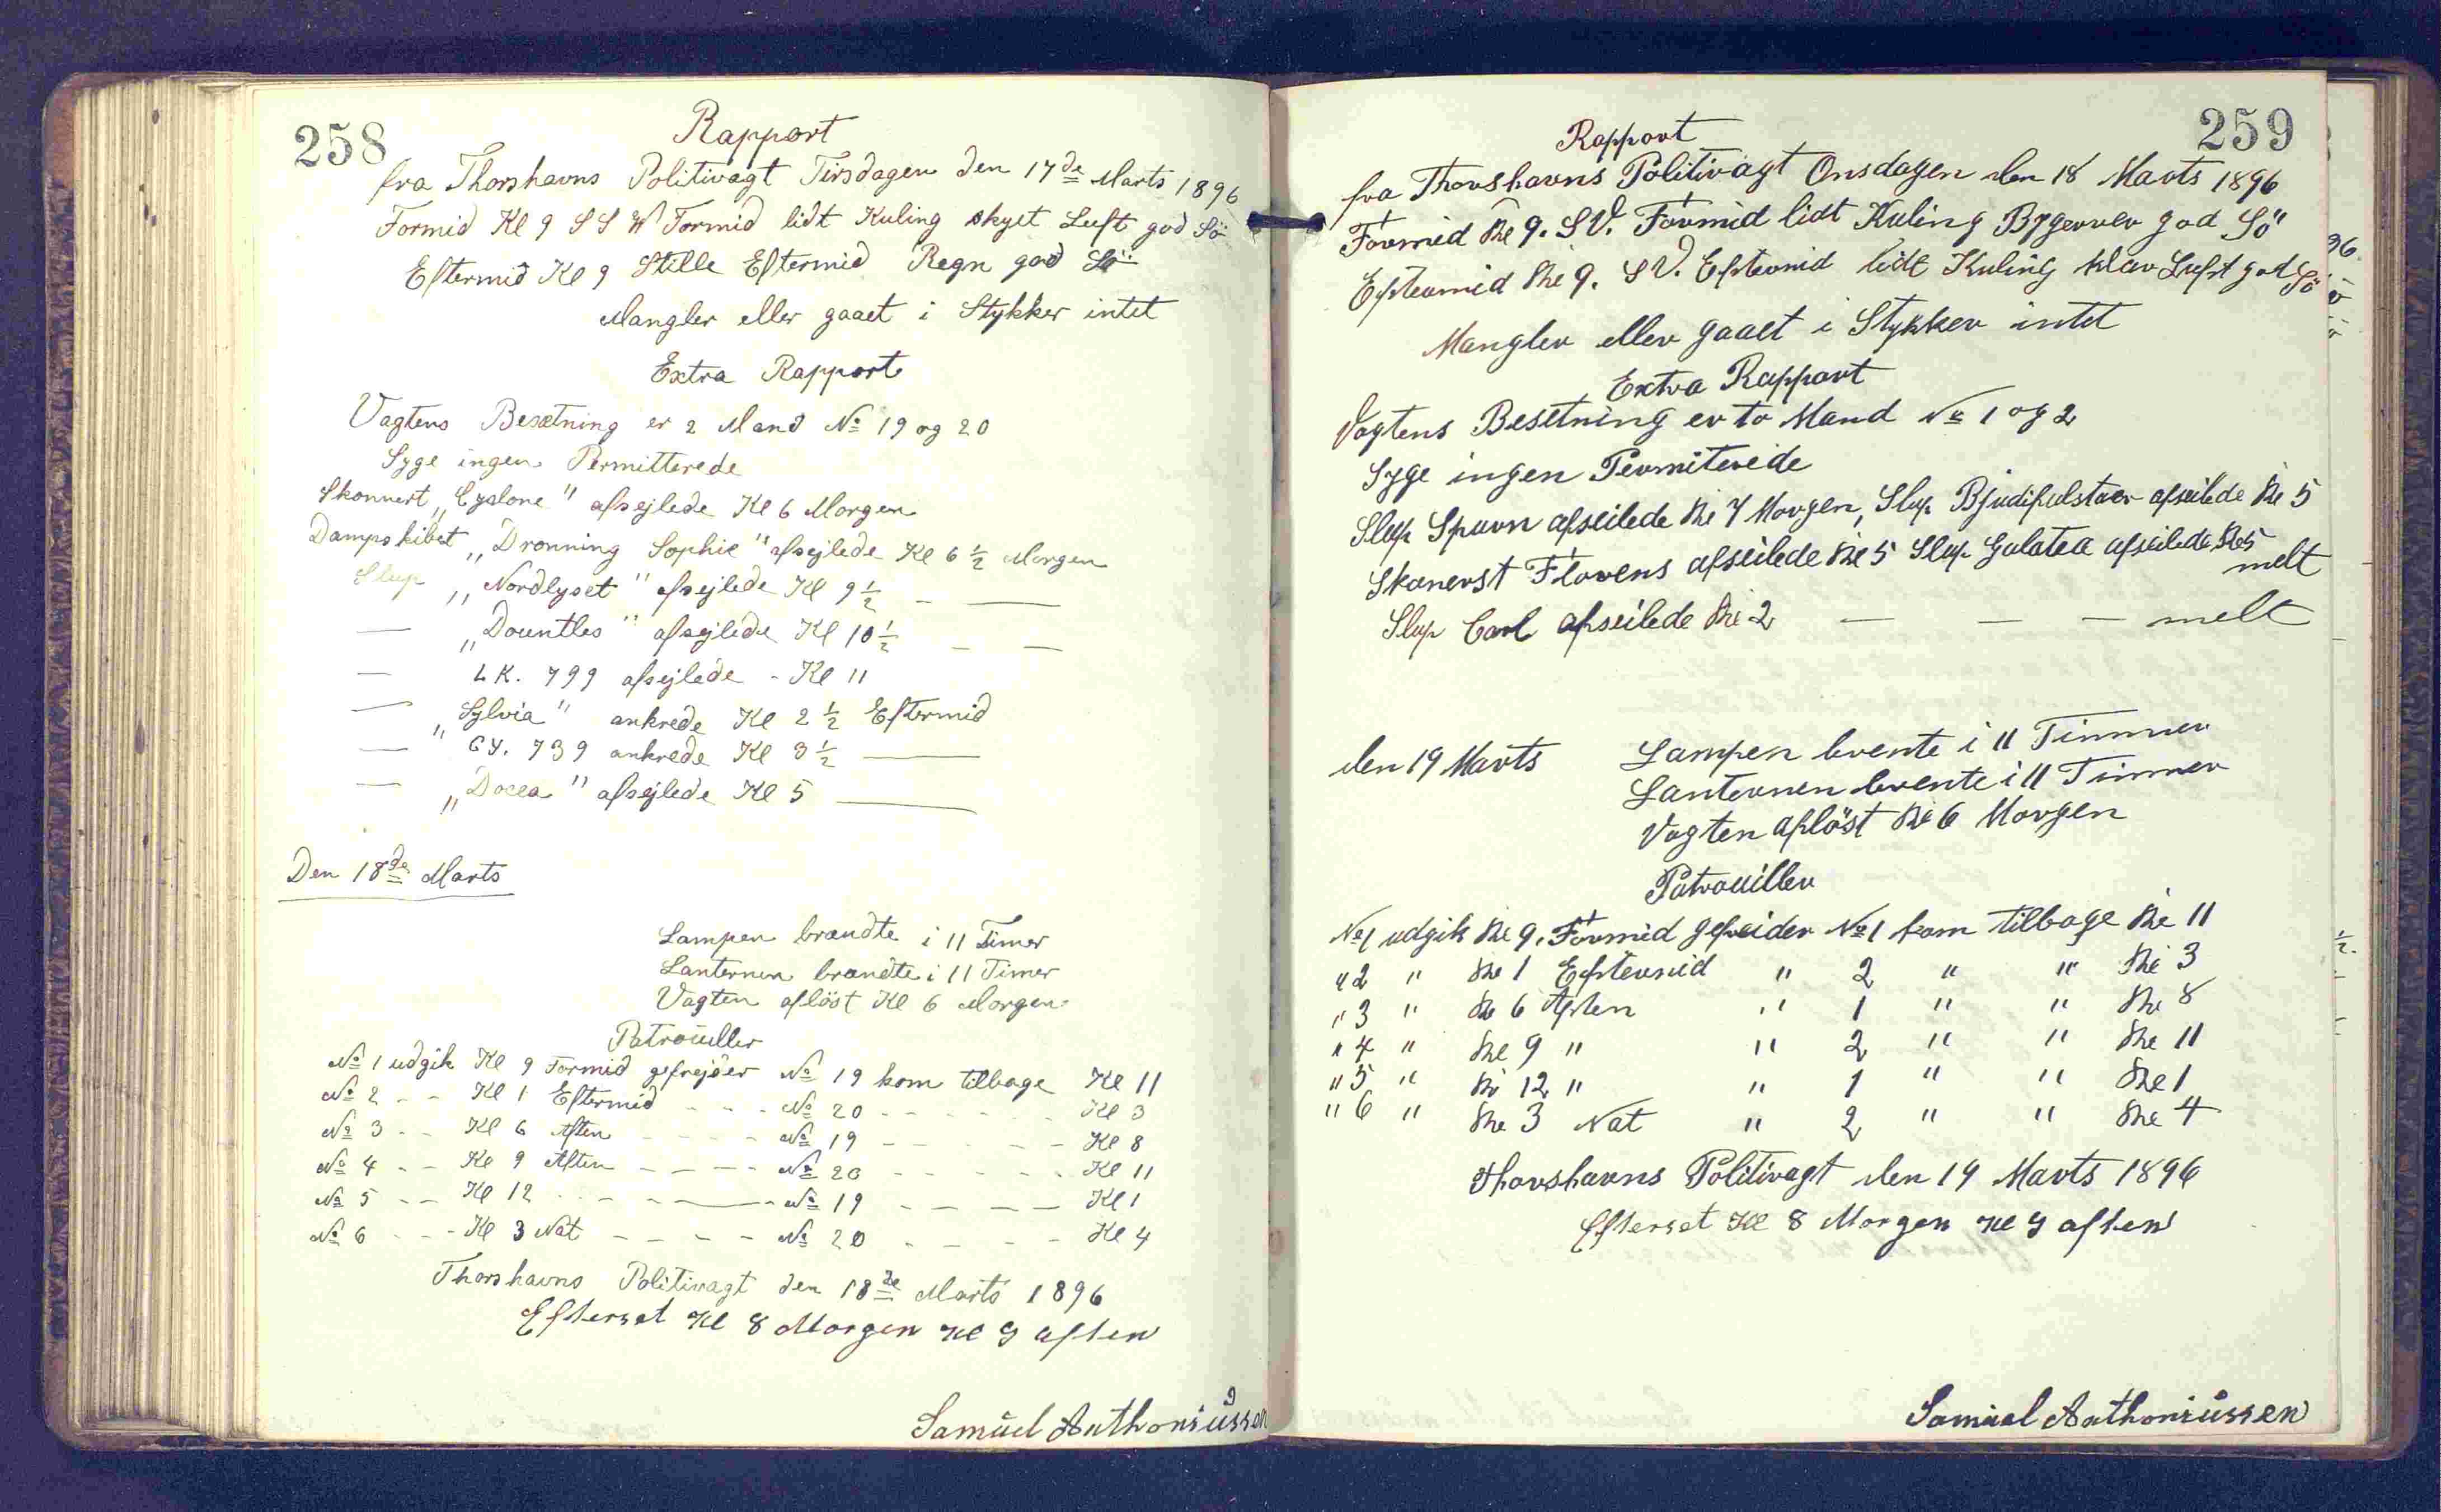 258
Rapport
fra Thorshavns Politivagt Tirsdagen den 17de Marts 1896
Formid Kl 9 S S W Formid lidt Kuling skyet Luft god Sö
Eftermid Kl 9 Stille Eftermid Regn god Sö
Mangler eller gaaet i Stykker intet
Extra Rapport
Vagtens Besætning er 2 Mand No 19 og 20
Syge ingen Permitterede
Skonnert „Cyclone" afsejlede Kl 6 Morgen
Dampskibet „Dronning Sophie" afsejlede Kl 6 1/2 Morgen
Slup „Nordlyset" afsejlede Kl 9 1/2 — —
— „Dountles" afsejlede Kl 10 1/2 — —
— LK. 799 afsejlede - Kl 11
— „Sylvia" ankrede Kl 2 1/2 Eftermid
— GY. 739 ankrede Kl 3 1/2 —
— „Docea" afsejlede Kl 5 —
Den 18de Marts
Lampen brændte i 11 Timer
Lanternen brændte i 11 Timer
Vagten aflöst Kl 6 Morgen
Patrouiller
No 1 udgik Kl 9 Formid gefrejder No 19 kom tilbage Kl 11
No 2 - - Kl 1 Eftermid - - - No 20 - - - - - Kl 3
No 3 - - Kl 6 Aften - - - - No 19 - - - - - Kl 8
No 4 - - Kl 9 Aften - - - - No 20 - - - - - Kl 11
No 5 - - Kl 12 - - - — - No 19 - - - - Kl 1
No 6 - - - Kl 3 Nat - - - - No 20 - - - - Kl 4
Thorshavns Politivagt den 18de Marts 1896
Efterset Kl 8 Morgen Kl 9 aften
Samuel Anthoniussen
259
Rapport
fra Thorshavns Politivagt Onsdagen den 18 Marts 1896
Formid Kl 9. SV. Formid lidt Kuling Bygerver god Sö
Eftermid Kl 9. SV. Eftermid lidt Kuling klar Luft god Sö
Mangler eller gaaet i Stykker intet
Extra Rapport
Vagtens Besetning er to Mand No 1 og 2
Syge ingen Permiterede
Slup Spurn afseilede Kl 7 Morgen, Slup afseilede Kl 5
Skonerst Florens afseilede Kl 5 Slup Galatea afseilede Kl 5
melt
Slup Carl afseilede Kl 2 — — — melt
den 19 Marts Lampen brente i 11 Timmer
Lanternen brente i 11 Timmer
Vagten aflöst Kl 6 Morgen
Patrouiller
No 1 udgik Kl 9. Formid gefreider No 1 kom tilbage Kl 11
" 2 " Kl 1 Eftermid " 2 " " Kl 3
" 3 " Kl 6 Aften " 1 " " Kl 8
" 4 " Kl 9 " " 2 " " Kl 11
" 5 " Kl 12 " " 1 " " Kl 1
" 6 " Kl 3 Nat " 2 " " Kl 4
Thorshavns Politivagt den 19 Marts 1896
Efterset Kl 8 Morgen Kl 9 aften
Samuel Anthoniussen